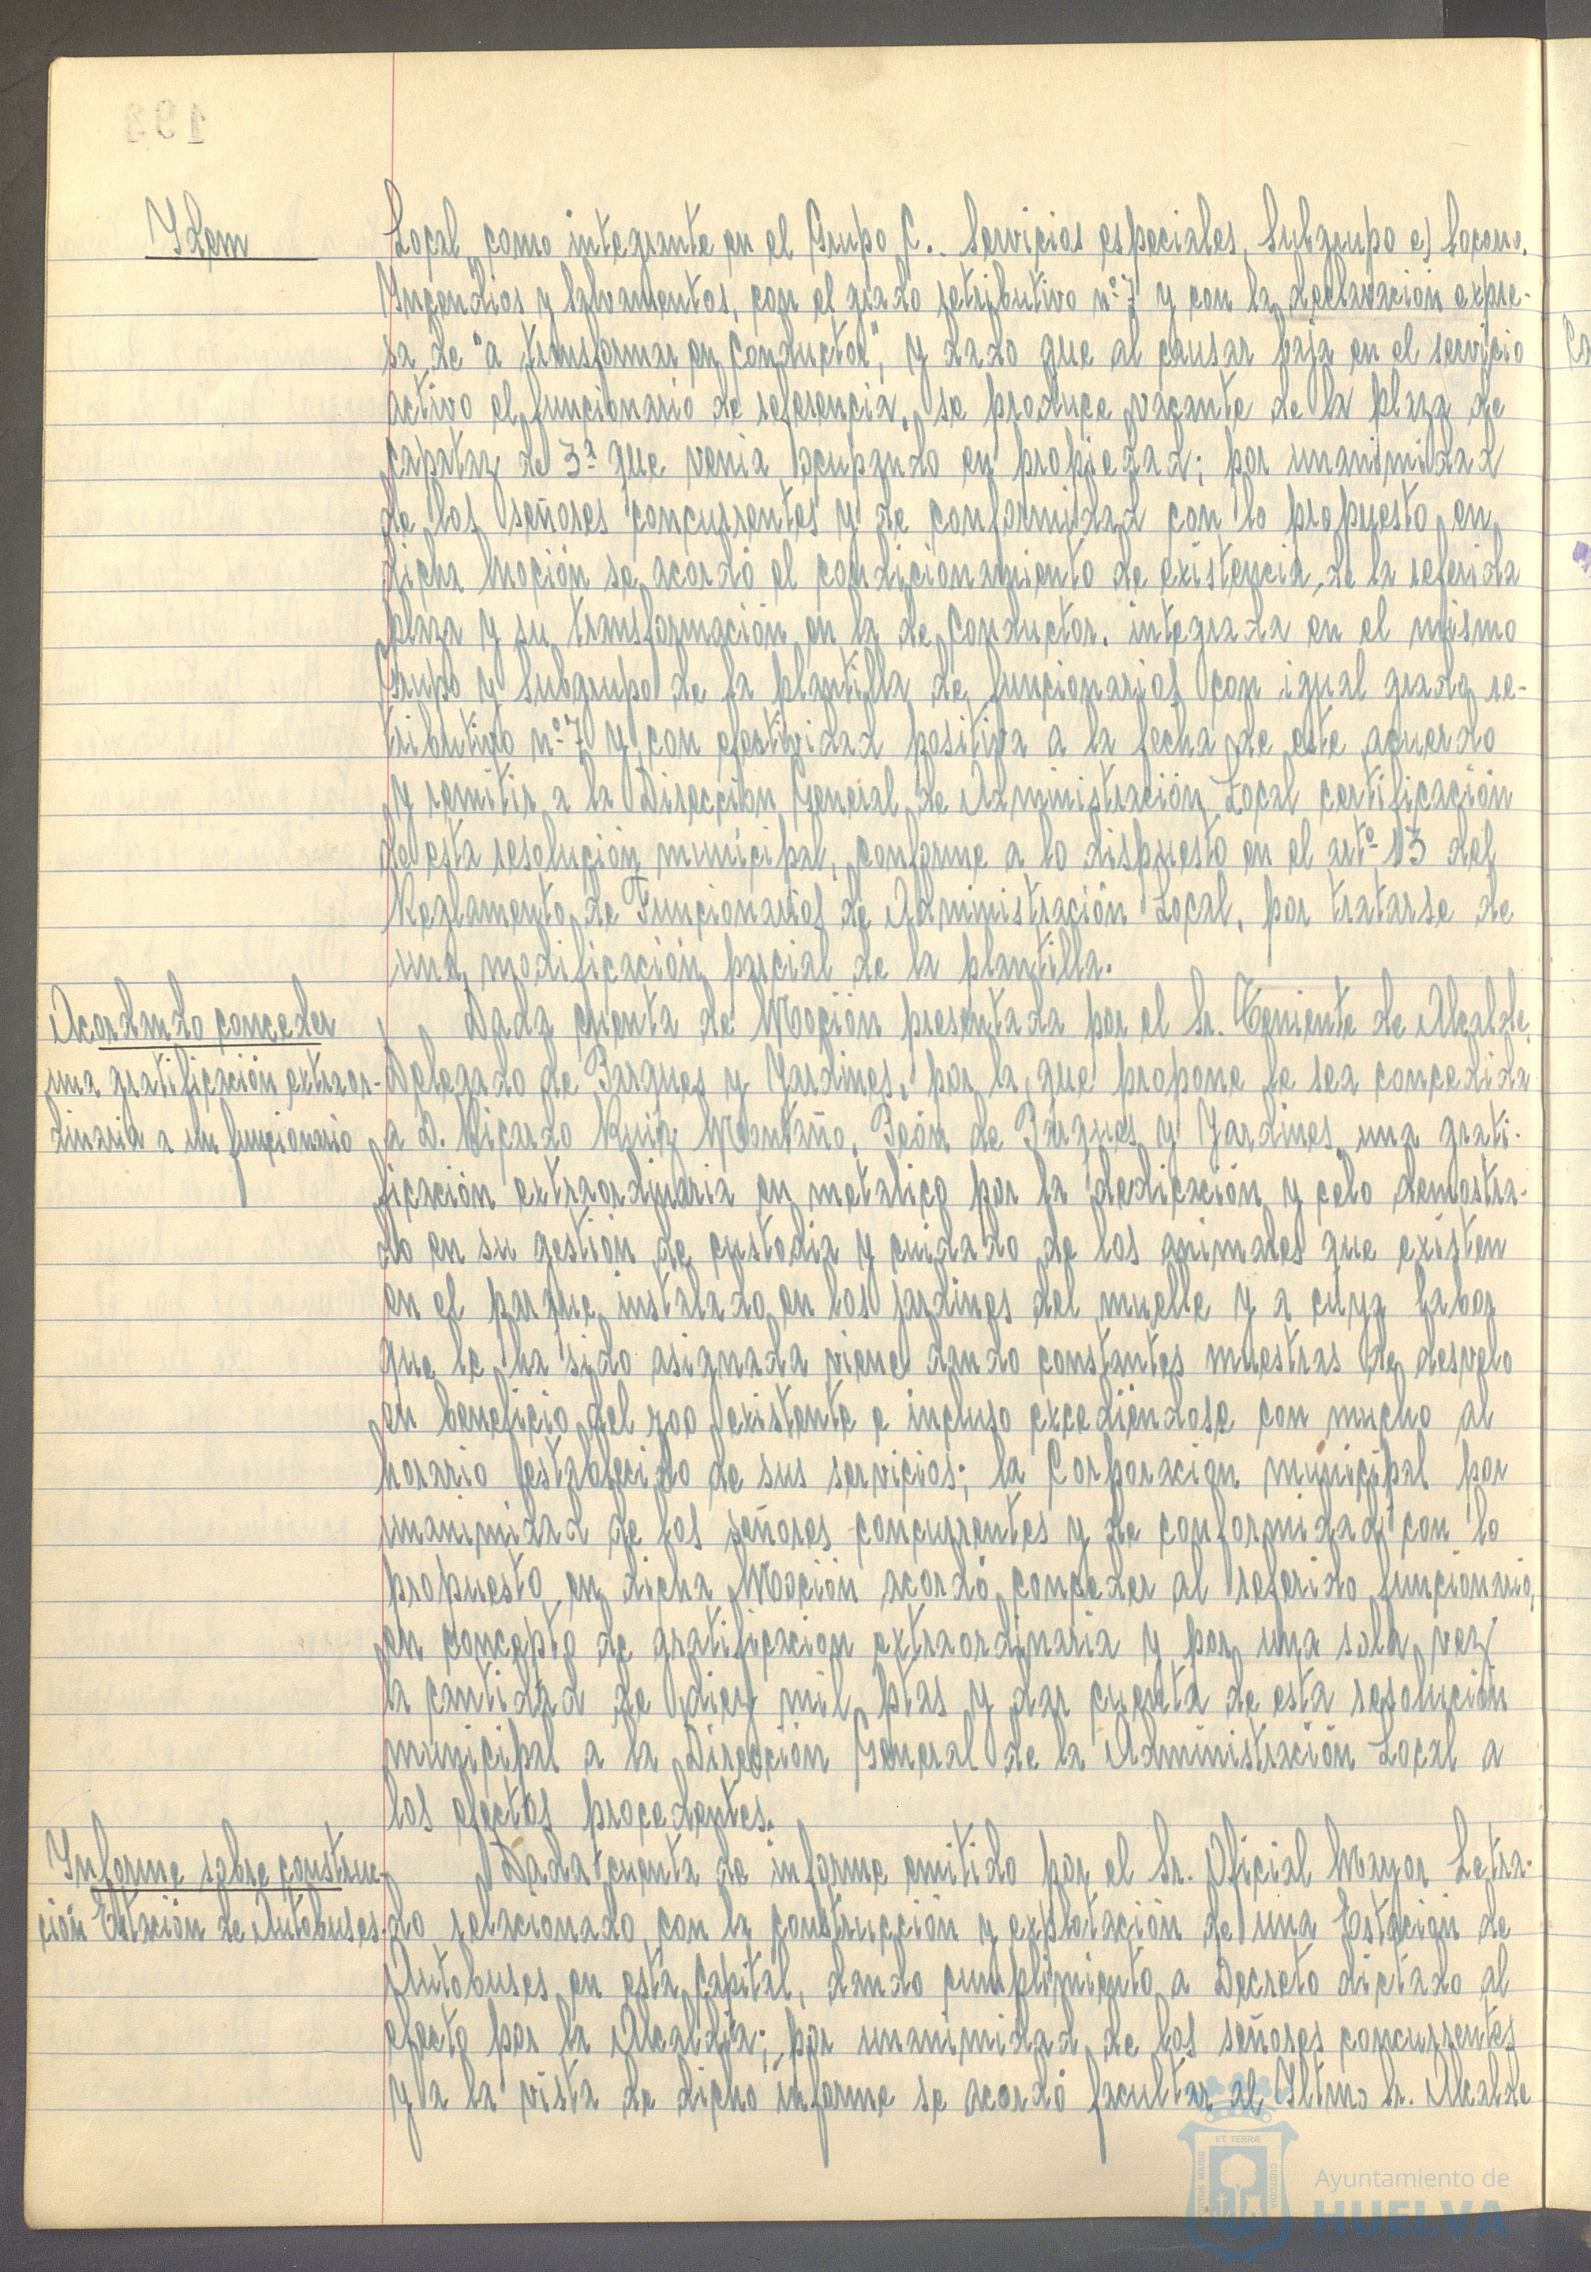 193
Idem
Local, como integrante en el Grupo C.. Servicios especiales, Subgrupo e) Socorro,
Incendios y Salvamentos, con el grado retributivo nº 7 y con la declaración expre-
sa de "a transformar en Conductor", y dado que al causar baja en el servicio
activo el funcionario de referencia, se produce vacante de la plaza de
Capataz de 3ª que venia ocupando en propiedad; por unanimidad
de los señores concurrentes y de conformidad con lo propuesto en
dicha Moción se acordó el condicionamiento de existencia de la referida
plaza y su transformación en la de Conductor, integrada en el mismo
Grupo y Subgrupo de la plantilla de funcionarios con igual grado re-
tributivo nº 7 y con efectividad positiva a la fecha de este acuerdo
y remitir a la Dirección General de Administración Local certificación
de esta resolución municipal, conforme a lo dispuesto en el artº 13 del
Reglamento de Funcionarios de Administración Local, por tratarse de
una modificación parcial de la plantilla.
Acordando conceder
una gratificación extraor-
dinaria a un funcionario
Dada cuenta de Moción presentada por el Sr. Teniente de Alcalde
Delegado de Parques y Jardines, por la que propone le sea concedida
a D. Ricardo Ruiz Montaño, Peón de Parques y Jardines una grati-
ficación extraordinaria en metalico por la dedicación y celo demostra-
do en su gestión de custodia y cuidado de los animales que existen
en el parque instalado en los jardines del muelle y a cuya labor
que le ha sido asignada viene dando constantes muestras de desvelo
en beneficio del zoo existente e incluso excediendose con mucho al
horario establecido de sus servicios; la Corporación municipal por
unanimidad de los señores concurrentes y de conformidad con lo
propuesto en dicha Moción acordó conceder al referido funcionario,
en concepto de gratificacion extraordinaria y por una sola vez
la cantidad de diez mil ptas y dar cuenta de esta resolución
municipal a la Dirección General de la Administración Local a
los efectos procedentes.
Informe sobre construc-
ción Estación de Autobuses
Dada cuenta de informe emitido por el Sr. Oficial Mayor Letra-
do relacionado con la construcción y explotación de una Estación de
Autobuses en esta Capital, dando cumplimiento a Decreto dictado al
efecto por la Alcaldia; por unanimidad de los señores concurrentes
y a la vista de dicho informe se acordó facultar al Iltmo Sr. Alcalde
PORTUS MARIS ET TERRÆ CUSTODIA
Ayuntamiento de
HUELVA